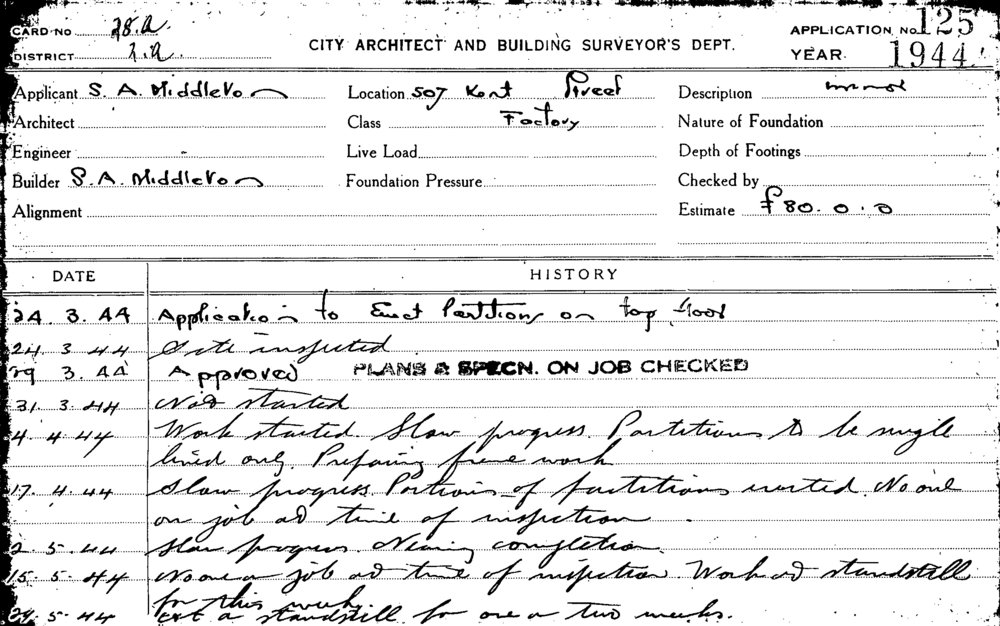 CARD NO 28.a
DISTRICT 2.a.
CITY ARCHITECT AND BUILDING SURVEYOR'S DEPT.
APPLICATION No. 125
YEAR 1944
Applicant S. A. Middleton
Location 507 Kent Street
Description
Architect
Class Factory
Nature of Foundation
Engineer -
Live Load
Depth of Footings
Builder S. A. Middleton
Foundation Pressure
Checked by
Alignment
Estimate £80.0.0
DATE HISTORY
24. 3. 44 Application to Erect Partitions on top floor
24. 3 44 Site inspected
29 3. 44 Approved PLANS & SPECN. ON JOB CHECKED
31. 3. 44 Not started
4. 4. 44 Work started. Slow progress. Partitions to be single
lined only. Preparing frame work
17. 4. 44 Slow progress. Portions of partitions erected. No one
on job at time of inspection
2. 5. 44 Slow progress. Nearing completion.
15. 5. 44 No one on job at time of inspection. Work at standstill
for this week
29. 5. 44 at a standstill for one or two weeks.